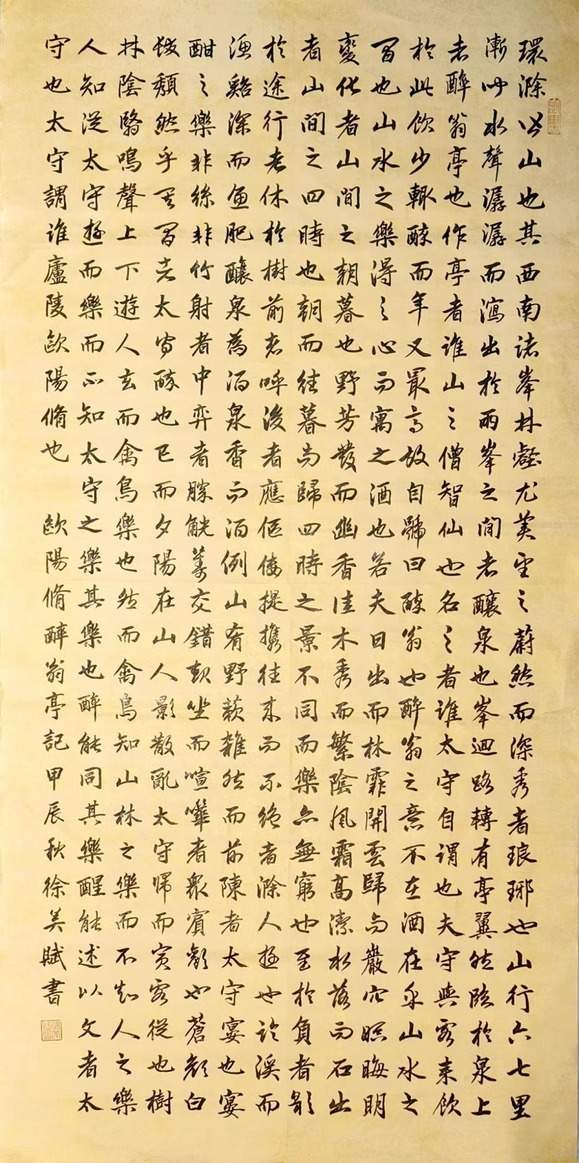 環滁皆山也其西南諸峯林壑尤美望之蔚然而深秀者琅琊也山行六七里
漸聞水聲潺潺而瀉出於兩峯之間者釀泉也峯迴路轉有亭翼然臨於泉上
者醉翁亭也作亭者誰山之僧智仙也名之者誰太守自謂也夫守與客来飲
於此飲少輒醉而年又最高故自號曰醉翁也醉翁之意不在酒在乎山水之
間也山水之樂得之心而寓之酒也若夫日出而林霏開雲歸而巖穴暝晦明
變化者山間之朝暮也野芳發而幽香佳木秀而繁陰風霜高潔水落而石出
者山間之四時也朝而往暮而歸四時之景不同而樂亦無窮也至於負者歌
於途行者休於樹前者呼後者應傴僂提攜往来而不絕者滁人遊也臨溪而
漁谿深而魚肥釀泉為酒泉香而酒冽山肴野蔌雜然而前陳者太守宴也宴
酣之樂非絲非竹射者中弈者勝觥籌交錯起坐而喧嘩者眾賓歡也蒼顏白
髮頹然乎其間者太守醉也已而夕陽在山人影散亂太守歸而賓客從也樹
林陰翳鳴聲上下遊人去而禽鳥樂也然而禽鳥知山林之樂而不知人之樂
人知從太守遊而樂而不知太守之樂其樂也醉能同其樂醒能述以文者太
守也太守謂誰廬陵歐陽脩也 歐陽脩醉翁亭記甲辰秋徐美賦書